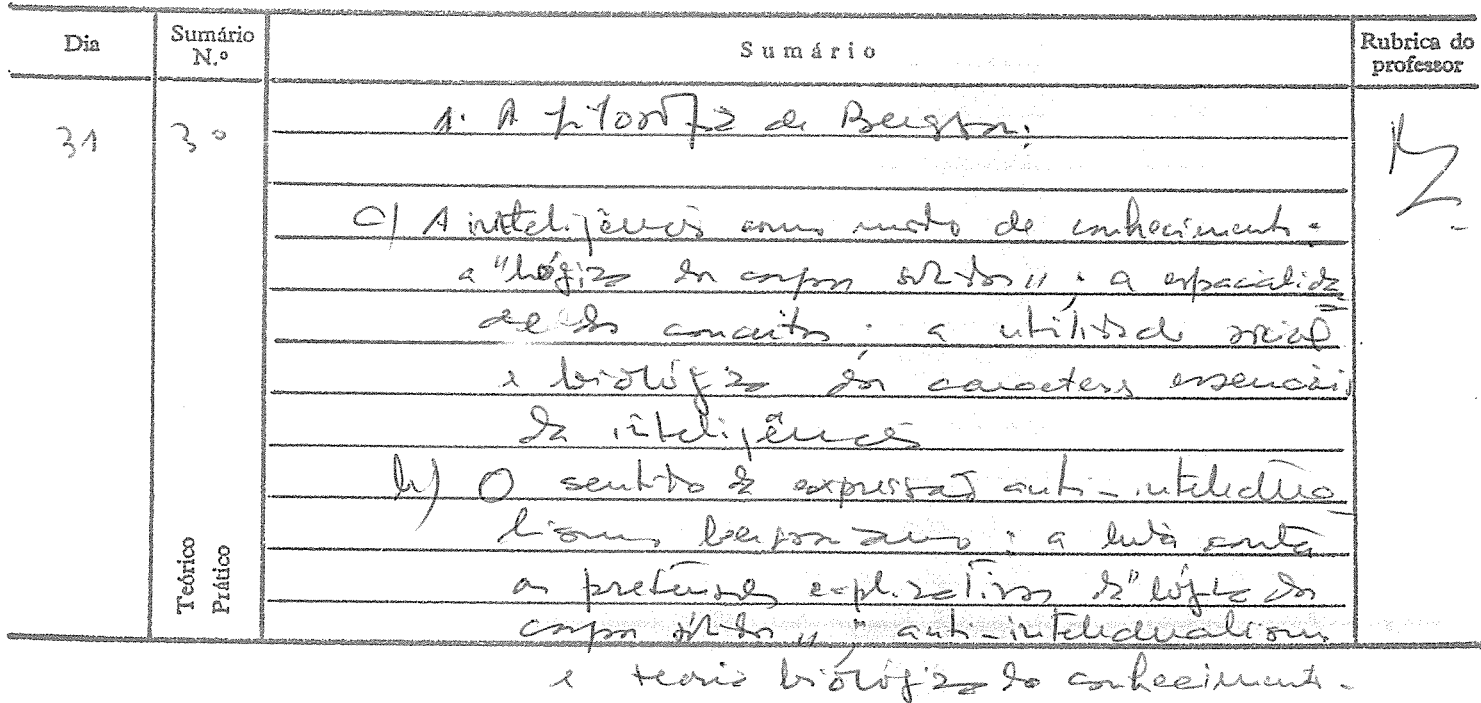 Dia
Sumário
N.º
Sumário
Rubrica do
professor
31
3º
1. A filosofia de Bergson:
c) A inteligência como modo de conhecimento:
a "lógica dos corpos sólidos"; a espacialida
de dos conceitos; a utilidade social
e biológica dos caracteres essenciais
da inteligência
h) O sentido da expressão anti-intelectua
lismo bergsoniano: a luta contra
as pretensões explicativas da "lógica dos
corpos sólidos"; anti-intelectualismo
e teoria biológica do conhecimento.
Teórico
Prático